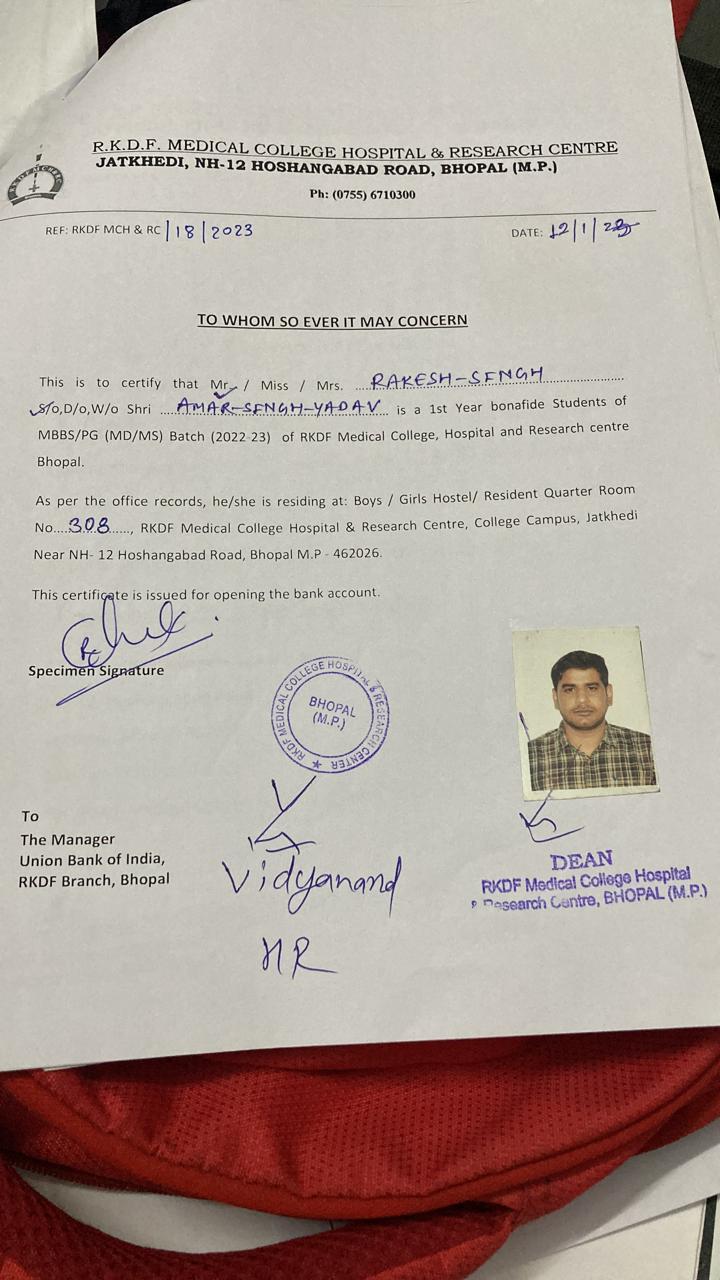 R.K.D.F. MEDICAL COLLEGE HOSPITAL & RESEARCH CENTRE
JATKHEDI, NH-12 HOSHANGABAD ROAD, BHOPAL (M.P.)
Ph: (0755) 6710300
REF: RKDF MCH & RC /18/2023
DATE: 12/1/23
TO WHOM SO EVER IT MAY CONCERN
This is to certify that Mr. / Miss / Mrs. ....RAKESH-SINGH....................
S/o,D/o,W/o Shri ....AMAR-SINGH-YADAV.. is a 1st Year bonafide Students of
MBBS/PG (MD/MS) Batch (2022-23) of RKDF Medical College, Hospital and Research centre
Bhopal.
As per the office records, he/she is residing at: Boys / Girls Hostel/ Resident Quarter Room
No....308....., RKDF Medical College Hospital & Research Centre, College Campus, Jatkhedi
Near NH- 12 Hoshangabad Road, Bhopal M.P - 462026.
This certificate is issued for opening the bank account.
Specimen Signature
RKDF MEDICAL COLLEGE HOSPITAL & RESEARCH CENTER
BHOPAL
(M.P.)
To
The Manager
Union Bank of India,
RKDF Branch, Bhopal
Vidyanand
HR
DEAN
RKDF Medical College Hospital
& Research Centre, BHOPAL (M.P.)